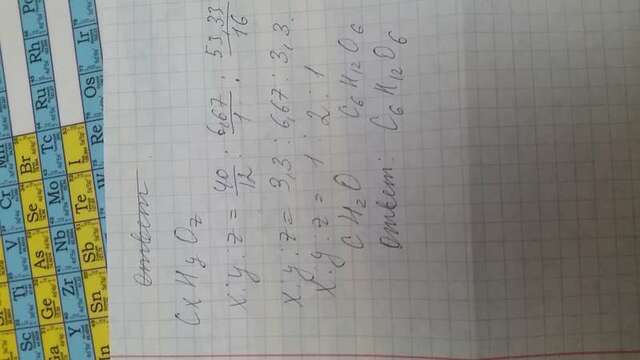 Sc Ti V Cr Mn
Ga Ge As Se Br
Y Zr Nb Mo Tc Ru Rh
In Sn Sb Te I
W Re Os Ir
ответ
CxHyOz
x:y:z = 40/12 : 6,67/1 : 53,33/16
x:y:z = 3,3 : 6,67 : 3,3.
x:y:z = 1 : 2 : 1
CH₂O C₆H₁₂O₆
ответ: C₆H₁₂O₆